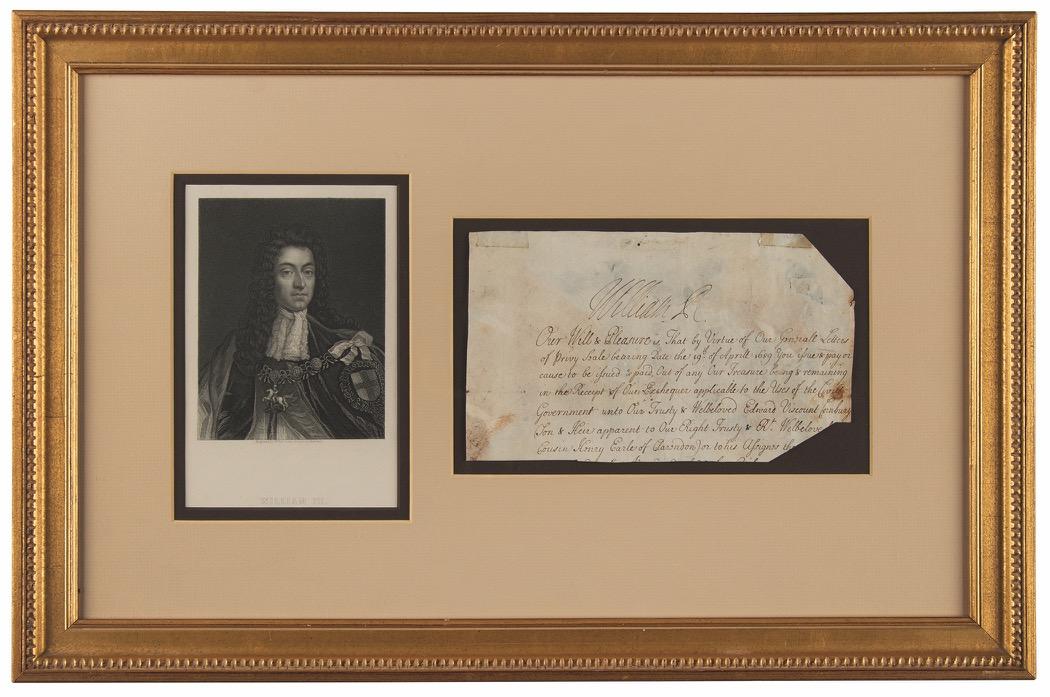 WILLIAM III.
William R.
Our Will & Pleasure is, That by Virtue of Our Generall Letters
of Privy Seale bearing Date the 19th. of Aprill 1689 You issue & pay or
cause to be issued & paid Out of any Our Treasure being & remaining
in the Receipt of Our Exchequer applicable to the Uses of the Civill
Government unto Our Trusty & Welbeloved Edward Viscount Cornbury
Son & Heir apparent to Our Right Trusty & Rt. Welbelove
Cousin Henry Earle of Clarendon) or to his Assignes the